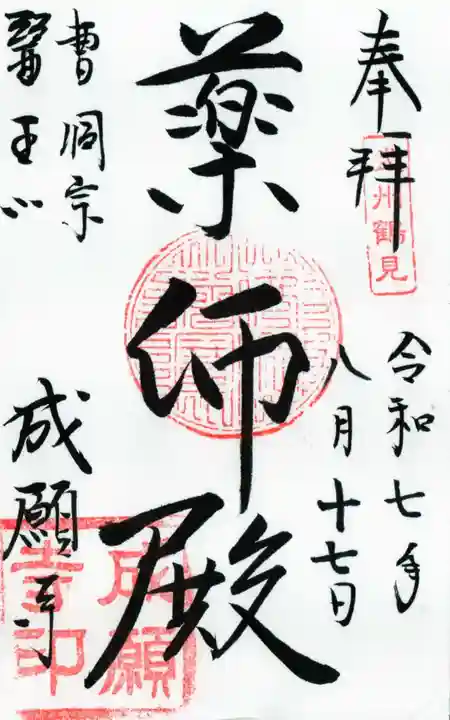 奉拝
武州鶴見
令和七年
八月十七日
薬師殿
曹洞宗
醫王山
成願寺
成願寺印